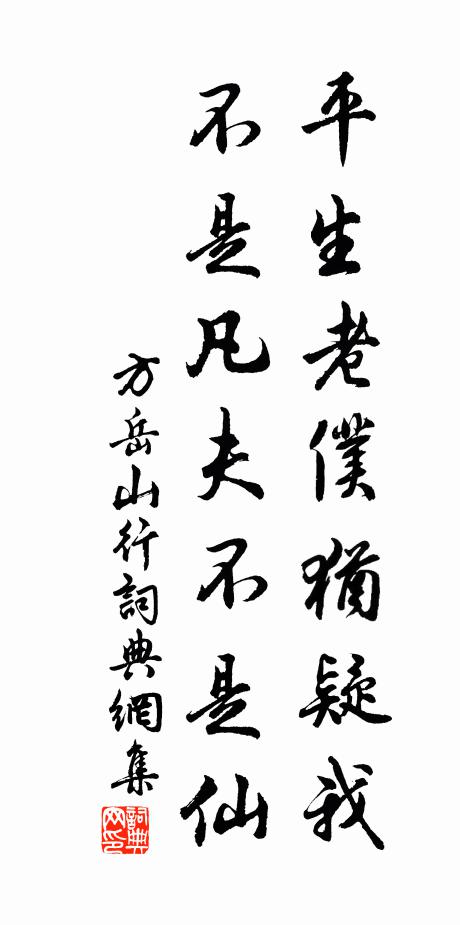 平生老僕猶疑我
不是凡夫不是仙
方岳山行詞典網集
詞典网印